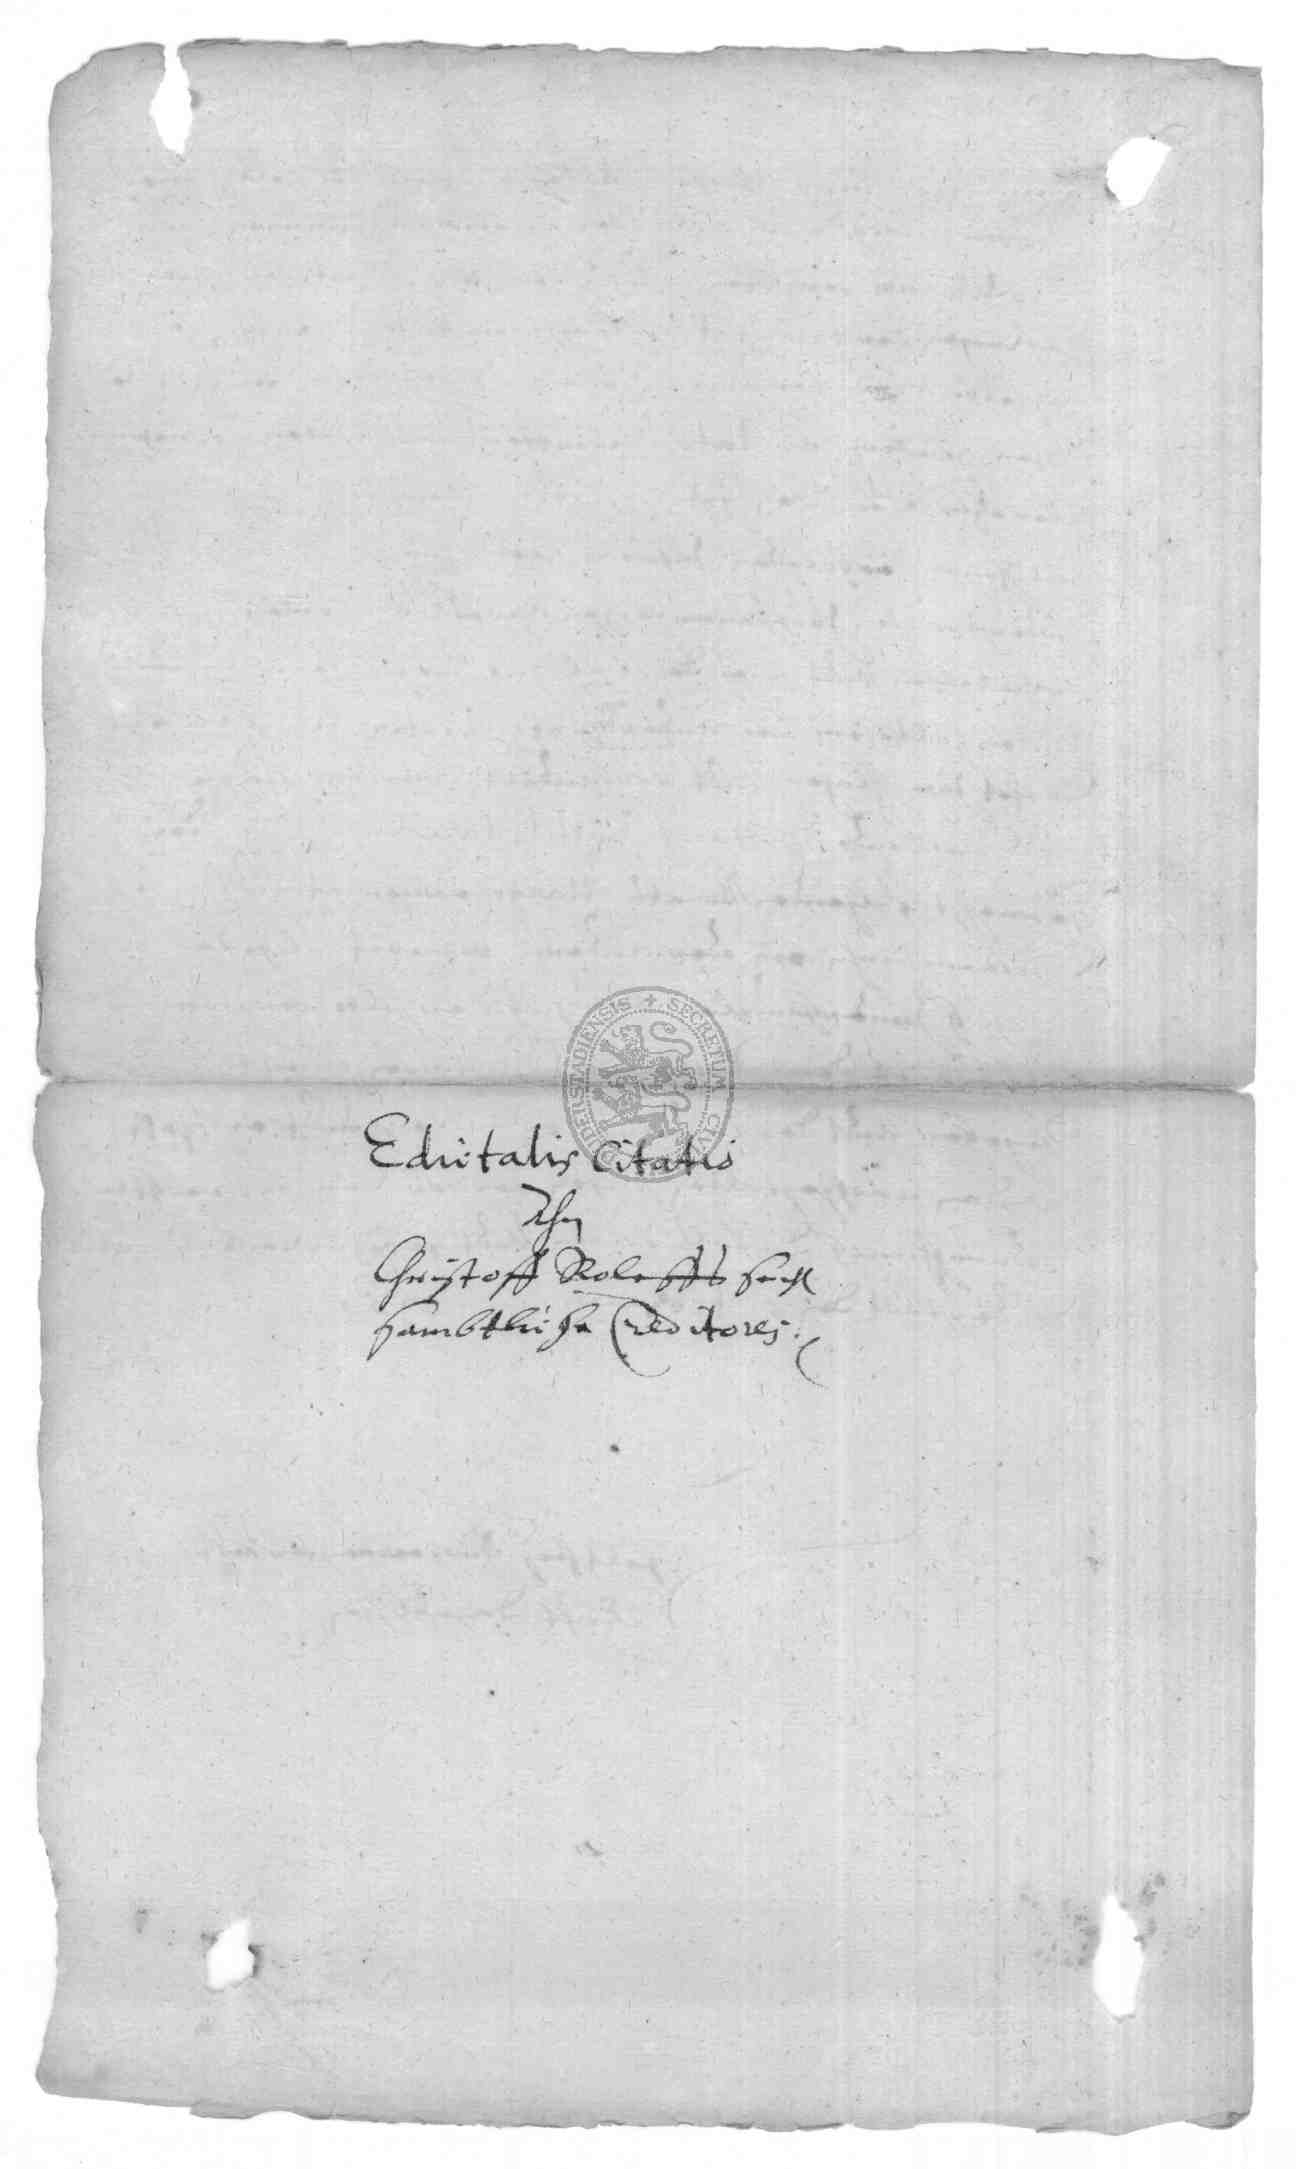 SECRETUM CIVI
DERSTADIENSIS
Edictalis Citatio
Ahn
Christoff Roleffs seel
sambtliche Creditores.